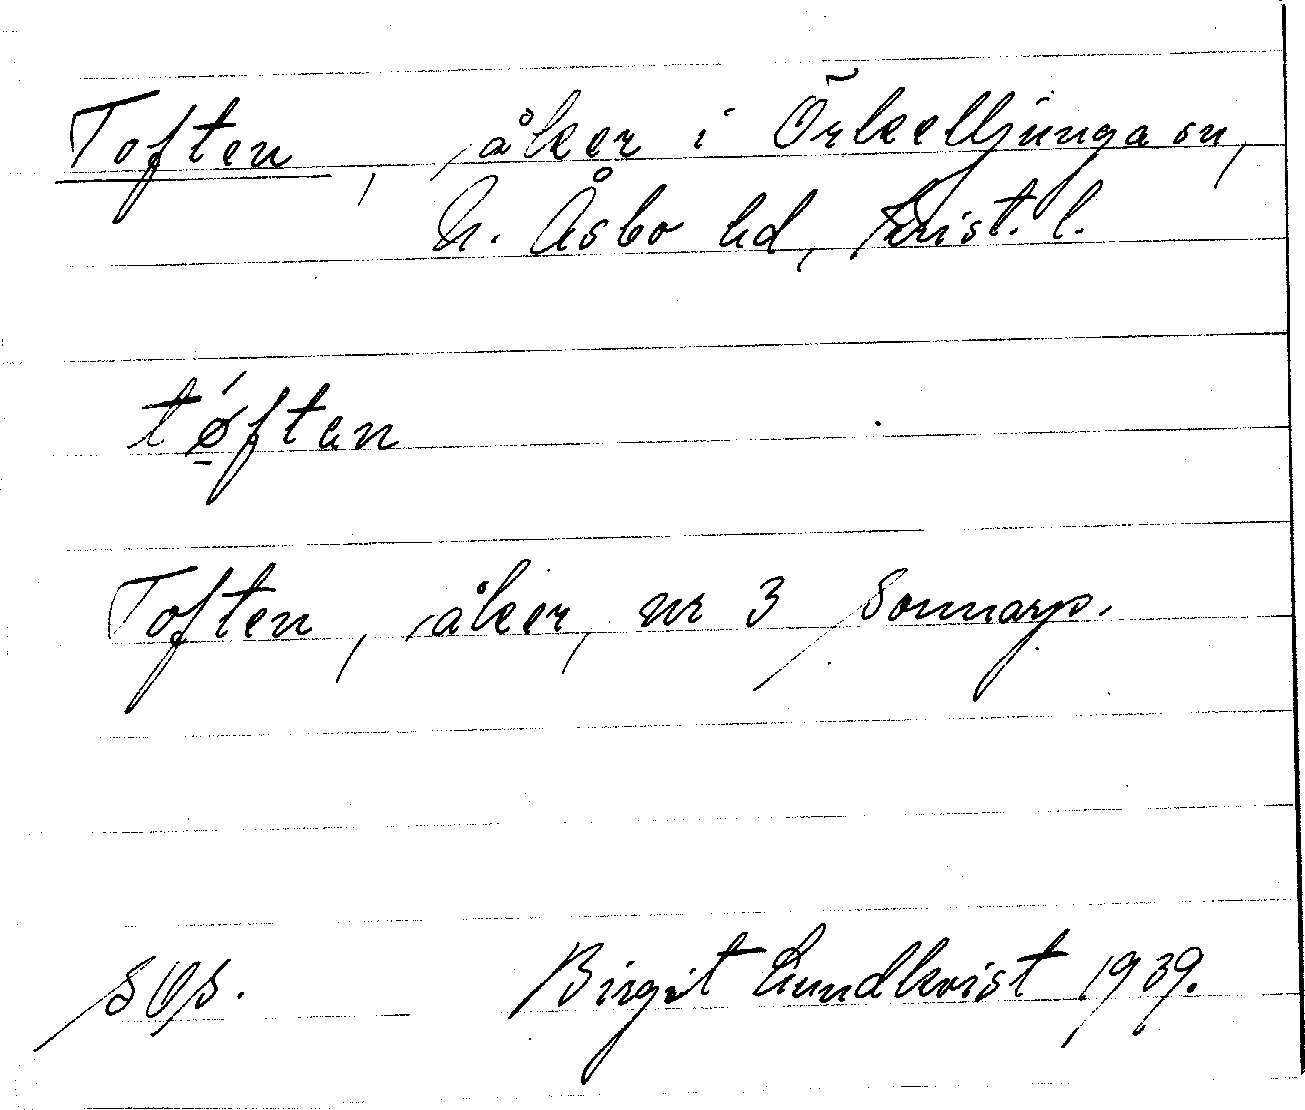 Toften, åker i Örkelljunga sn,
N. Åsbo hd, Krist. l.
tǿ̲ften
Toften, åker, nr 3 Sonnarp.
Birgit Lundkvist 1939.